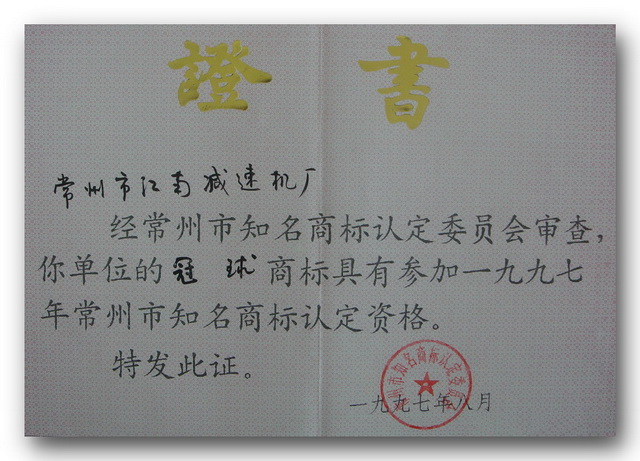 證書
常州市江南减速机厂
经常州市知名商标认定委员会审查,
你单位的冠球商标具有参加一九九七
年常州市知名商标认定资格。
特发此证。
常州市知名商标认定委员会
一九九七年八月